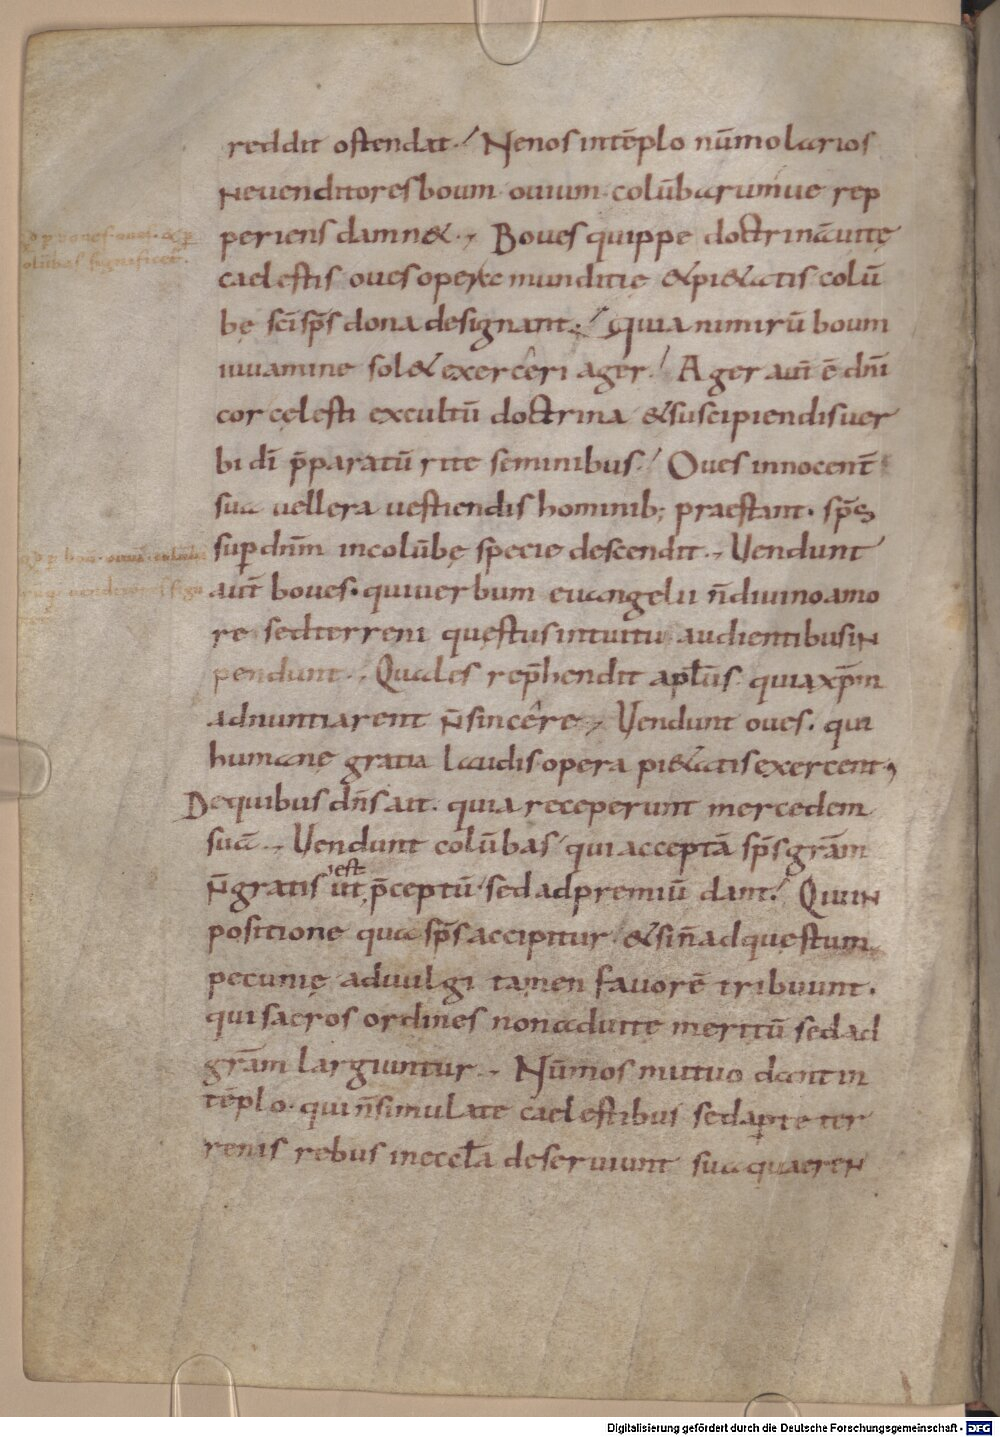 reddit ostendat. Nenos intēplo nūmolarios
Neuenditores boum ouium colūbarumue rep
periens damn&. Boues quippe doctrinā uitę
caelestis oues opera munditię & pi&atis colū
bę sc̄i sp̄s dona designant. quia nimirū boum
iuuamine sol& exerceri ager. Ager aut̄ ē dn̄i
cor cęlesti excultū doctrina & suscipiendis uer
bi dī p̄paratū rite seminibus. Oues innocent̄
sua uellera uestiendis hominib; praestant. sp̄s
sup dn̄m in colūbę specie descendit. Uendunt
aut̄ boues. qui uerbum euangelii n̄ diuino amo
re sed terreni quęstus intuitu audientibus iN
pendunt. Quales rep̄hendit apl̄us quia xp̄m
adnuntiarent n̄ sincere. Uendunt oues. qui
humanę gratia laudis opera pi&atis exercent,
De quibus dn̄s ait. quia receperunt mercedem
suā. Uendunt colūbas qui acceptā sp̄s grām
n̄ gratis ut p̄ceptū est sed ad premiū dant. Qui iN
positione qua sp̄s accipitur & si n̄ ad quęstum
pecunię ad uulgi tamen fauorē tribuunt.
qui sacros ordines non ad uitę meritū sed ad
grām largiuntur. Nūmos mutuo dant in
tēplo. qui n̄ simulate caelestibus sed aperte ter
renis rebus in eccl̄a deseruiunt sua quaereN
qd p boues oues. & p
olūbas significet.
Digitalisierung gefördert durch die Deutsche Forschungsgemeinschaft - DFG